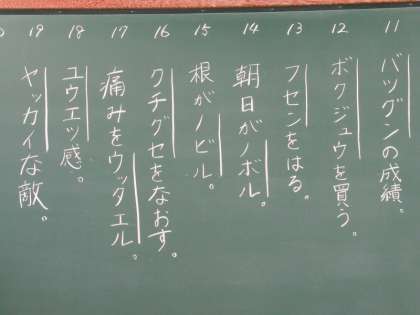 11 バツグンの成績。
12 ボクジュウを買う。
13 フセンをはる。
14 朝日がノボル。
15 根がノビル。
16 クチグセをなおす。
17 痛みをウッタエル。
18 ユウエツ感。
19 ヤッカイな敵。